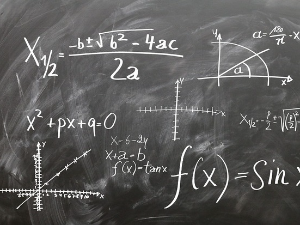 X1/2 = -b±√b²-4ac / 2a
y
a = 180/π · x
a
x
x²+px+q=0
y
x
X1/2 = -p/2 ± √(p/2)²
x-6-2y
x+a-b
f(x)=tanx
y
x
f(x)=Sin x